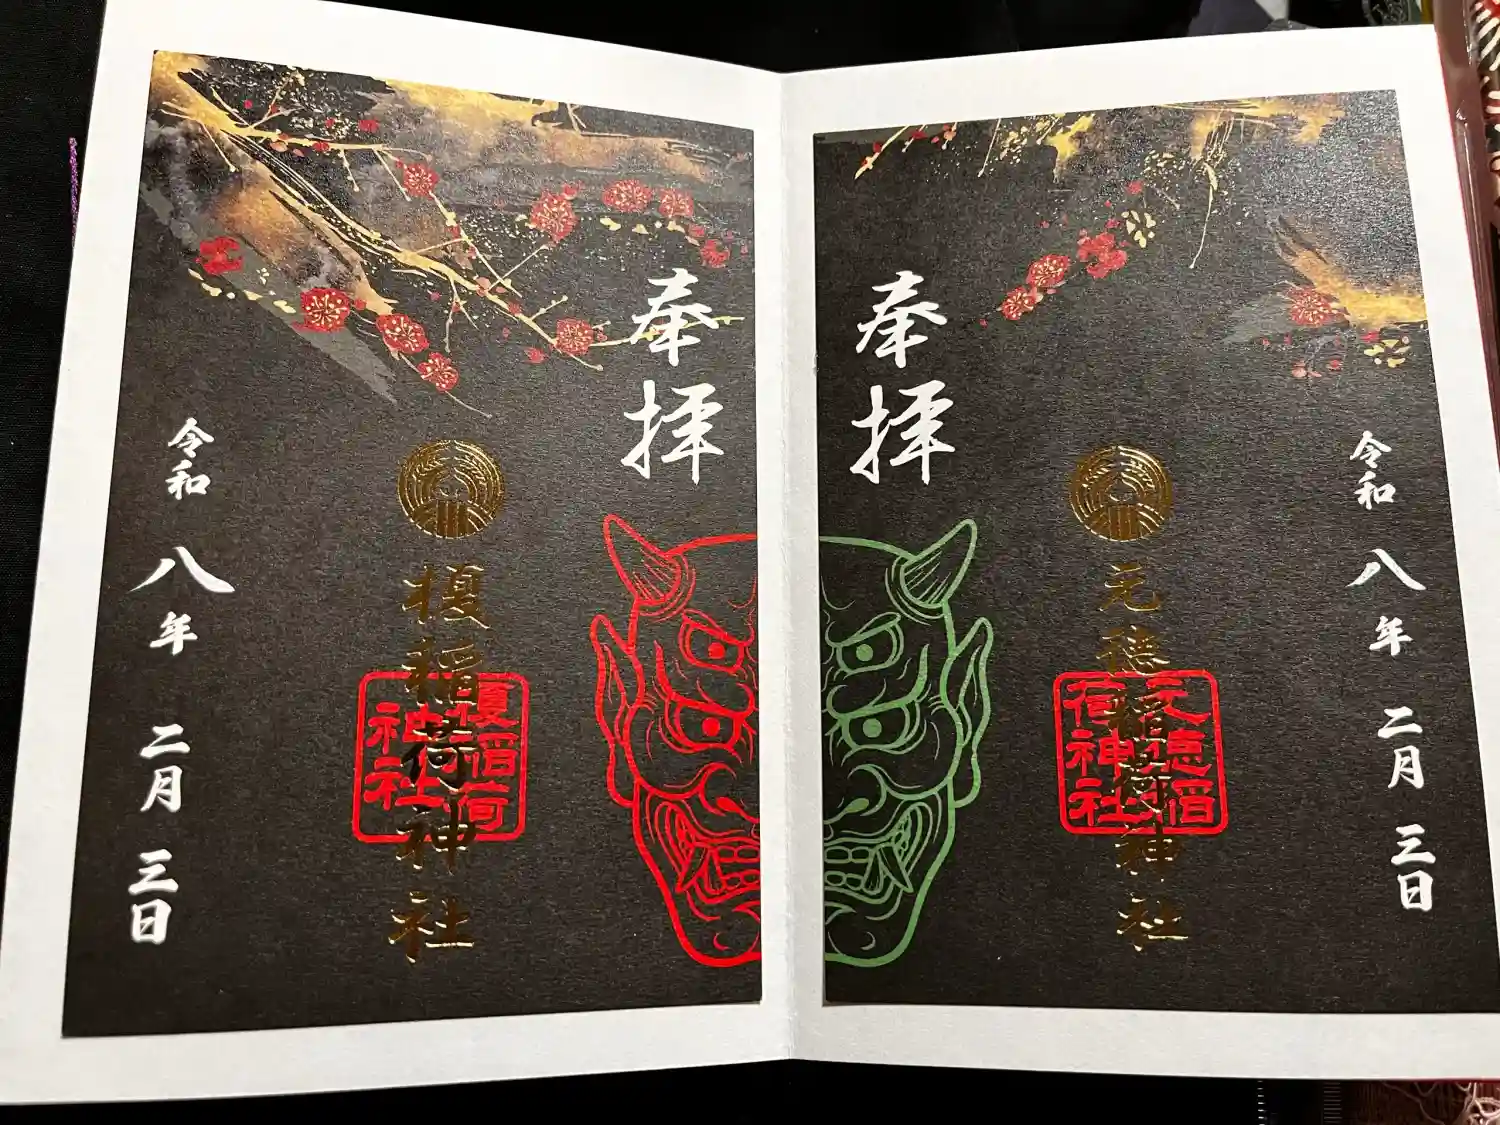 奉拝
元徳稲荷神社
元徳稲荷神社
令和八年二月三日
奉拝
榎稲荷神社
榎稲荷神社
令和八年二月三日